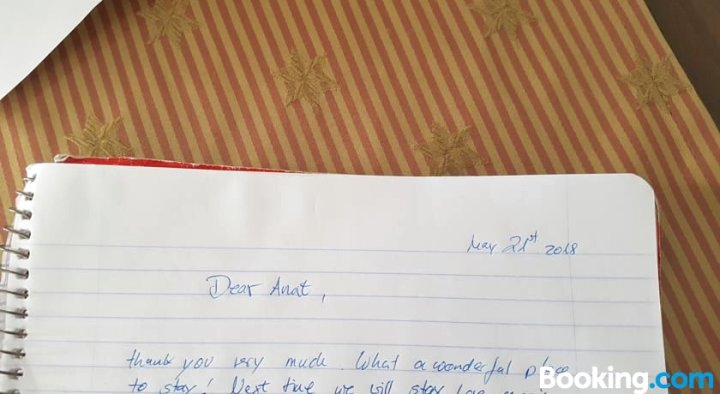 May 21st 2018
Dear Anat,
thank you very much. What a wonderful place
to stay! Next time we will stay
Booking.com